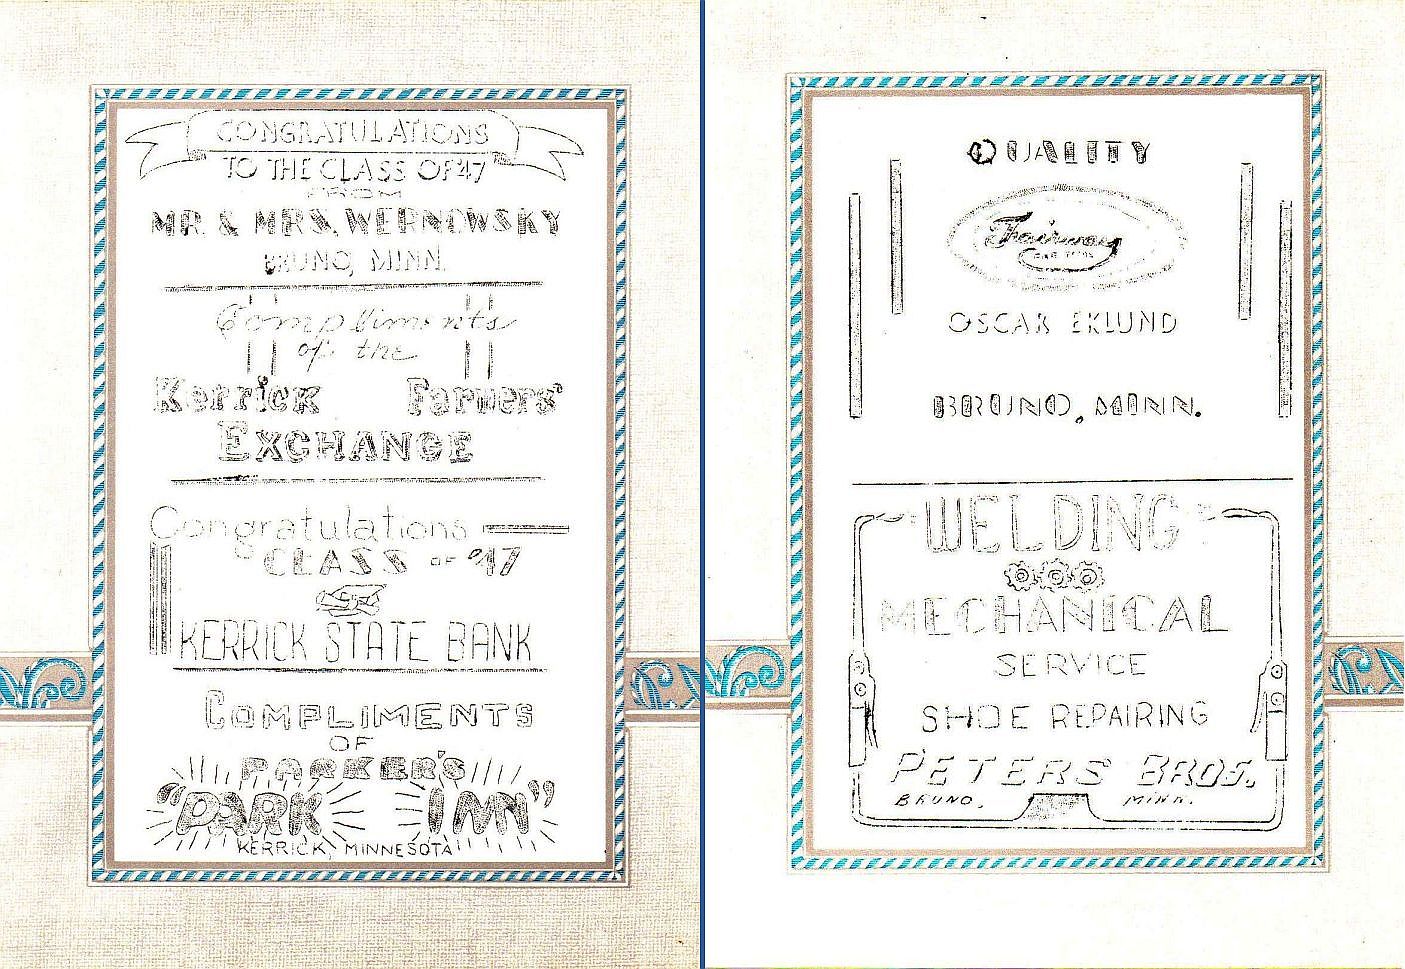 CONGRATULATIONS
TO THE CLASS OF '47
FROM
MR. & MRS. WERNOWSKY
BRUNO, MINN.
Compliments
of the
Kerrick Farmers'
EXCHANGE
Congratulations
CLASS OF '47
KERRICK STATE BANK
COMPLIMENTS
OF
PARKER'S
"PARK INN"
KERRICK, MINNESOTA
QUALITY
Fairway
OSCAR EKLUND
BRUNO, MINN.
WELDING
MECHANICAL
SERVICE
SHOE REPAIRING
PETERS BROS.
BRUNO, MINN.